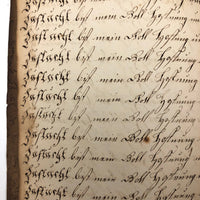 Zuflucht bist mein Gott Hofnung
Zuflucht bist mein Gott Hofnung in
Zuflucht bist mein Gott Hofnung in
Zuflucht bist mein Gott Hofnung in
Zuflucht bist mein Gott Hofnung
Zuflucht bist mein Gott Hofnung in
Zuflucht bist mein Gott Hofnung in
Zuflucht bist mein Gott Hofnung in
Zuflucht bist mein Gott Hofnung
Zuflucht bist mein Gott Hofnung